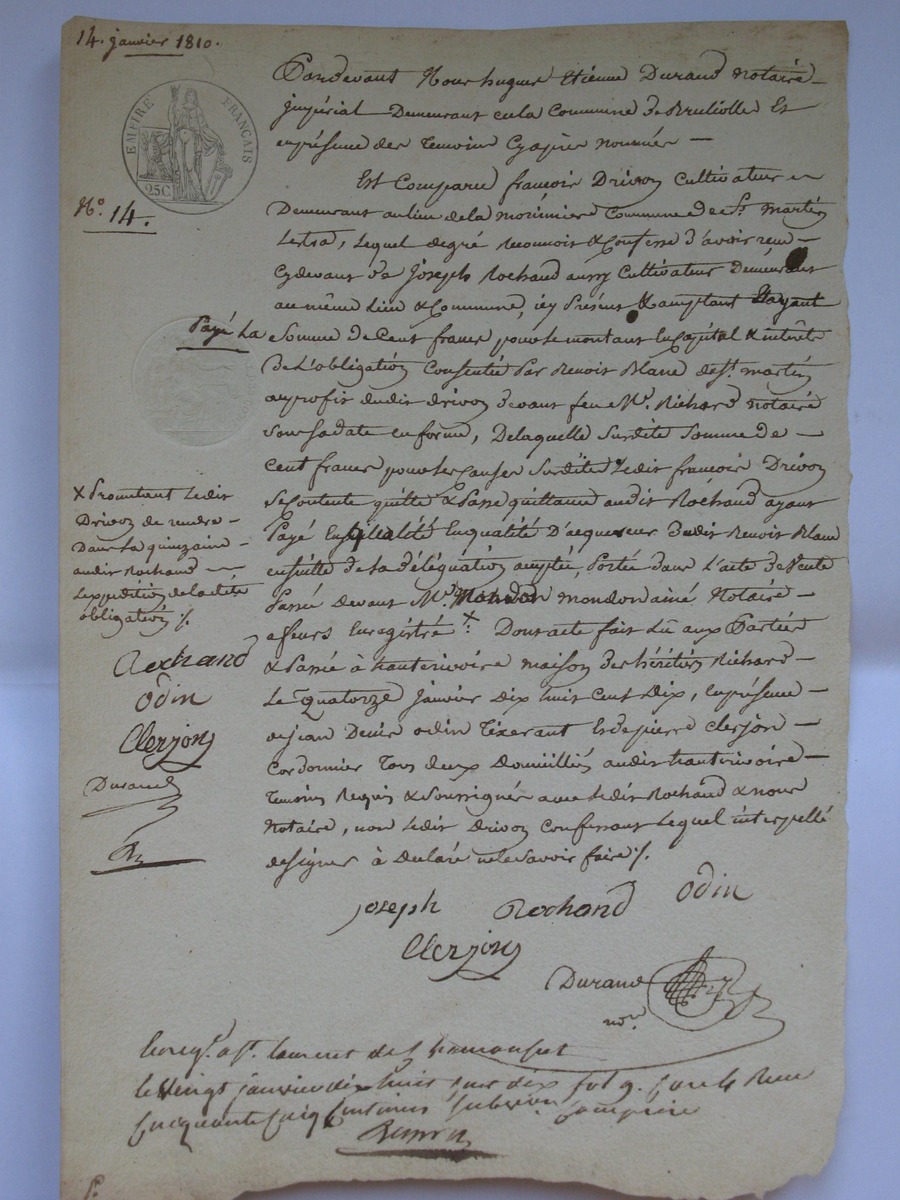 14. janvier 1810.
EMPIRE FRANÇAIS
25C
N.o 14.
Pardevant Nous hugues Etienne Durand notaire
jmpérial Demeurant en la Commune de Bruliolles Et
en présence des temoins Cyaprès nommés —
Est Comparu françois Drivon Cultivateur
Demeurant au lieu de la Commune de St. martin
Lestra, Lequel degré reconnois & Confesse d'avoir reçu —
Cydevant de Joseph Rochand aussy Cultivateur Demeurant
au même Lieu & Commune, icy Présent & acceptant
Payé La Somme de Cent francs pour le montant En Capital & intérêts
De L'obligation Consentie Par Benoit Blanc de St. martin
au profit dudit drivon devant feu Me. Richard notaire
Sous sa date en forme, De laquelle Susdite Somme de —
Cent francs pour les Causes Susdites Ledit françois Drivon
Se Contente quitte & Passe quittance audit Rochand ayant
Payé En qualité D'acquereur dudit Benoit Blanc
ensuitte de La délégation acceptée, Portée dans L'acte de Vente
Passée devant Me. mondon ainé Notaire —
a feurs Enregistré x. Dont acte fait Lû aux Parties
& Passé à hauterivoire maison des héritiers Richard —
Le quatorze janvier dix huit Cent Dix, En présence —
de jean Denis odin Tixerant Et de pierre Clerjon —
Cordonnier Tous deux Domicilliés audit hauterivoire —
Temoins Requis & Soussignés avec Ledit Rochand & nous
Notaire, non Ledit drivon confessant Lequel interpellé
de signer à Déclaré ne le Savoir faire ./.
x Promettant Ledit
Drivon de rendre —
Dans La quinzaine —
audit Rochand —
L'expédition de La ditte
obligation ./.
Rochand
Odin
Clerjon
Durand
Joseph Rochand Odin
Clerjon
Durand
nore.
Enreg. a St. Laurent de Chamousset
le Vingt janvier dix huit cent dix fol 9. Reçu
Cinquante Cinq Centimes Subvion. Comprise